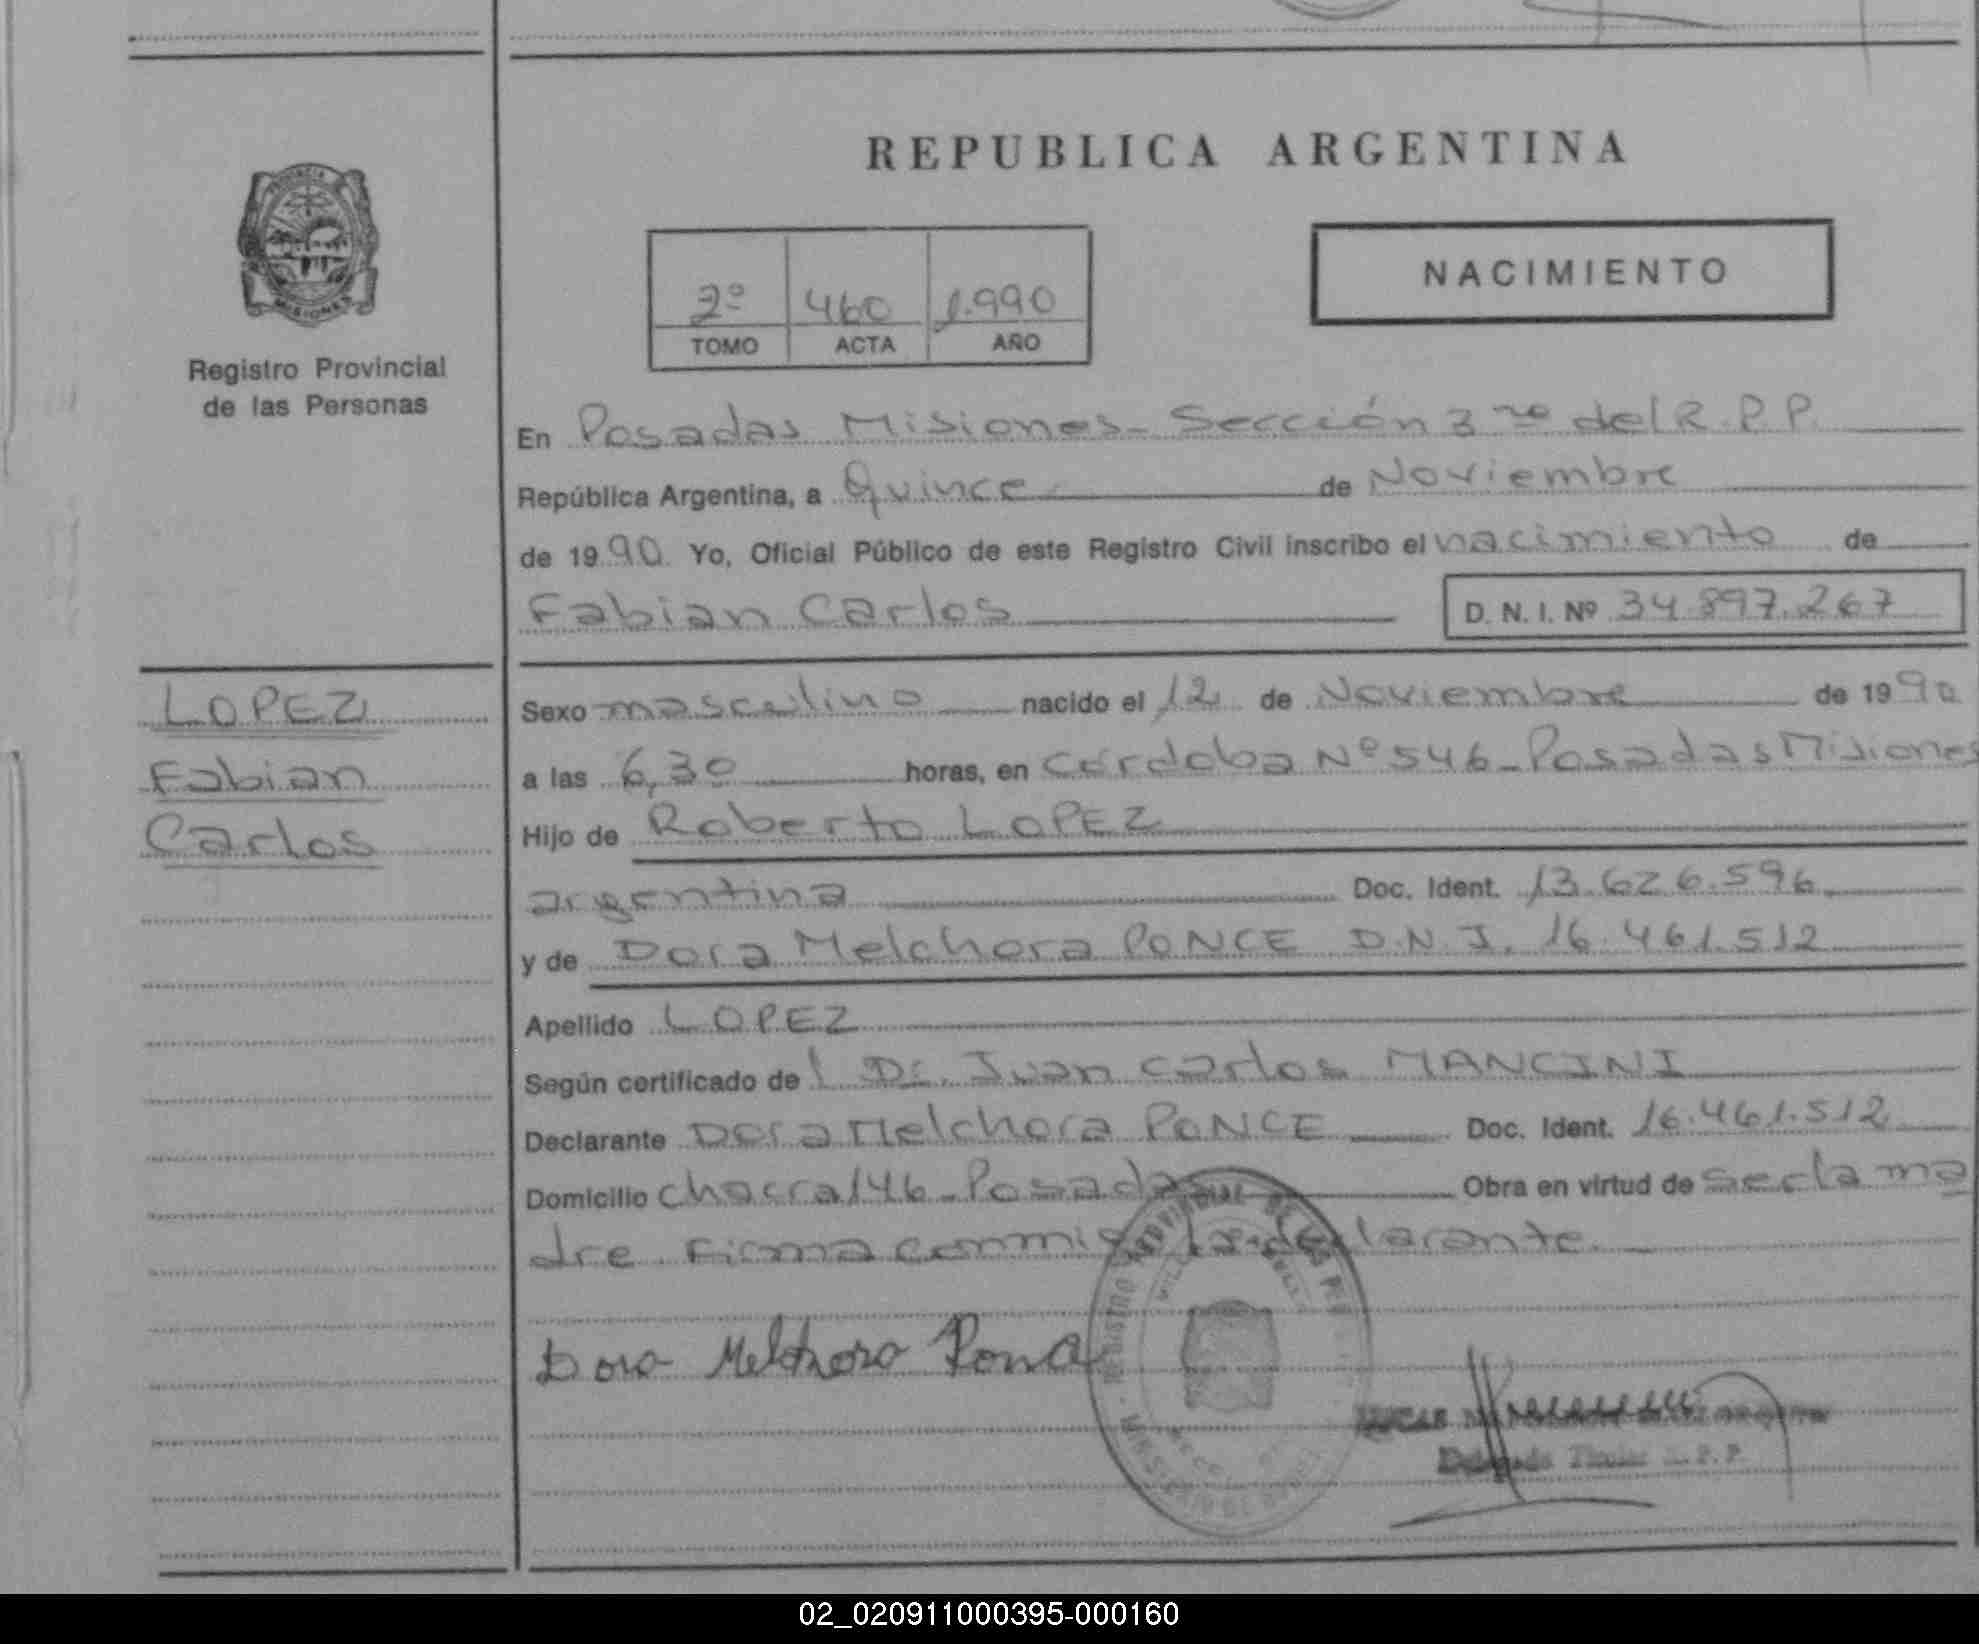 REPUBLICA ARGENTINA
PROVINCIA
MISIONES
Registro Provincial
de las Personas
2º 460 1.990
TOMO ACTA AÑO
NACIMIENTO
En Posadas Misiones - Sección 3ra del R.P.P.
República Argentina, a Quince de Noviembre
de 1990. Yo, Oficial Público de este Registro Civil inscribo el nacimiento de
Fabian Carlos D. N. I. Nº 34.897.267
LOPEZ
Fabian
Carlos
Sexo masculino nacido el 12 de Noviembre de 1990
a las 6,30 horas, en Córdoba Nº 546 - Posadas Misiones
Hijo de Roberto LOPEZ
argentina Doc. Ident. 13.626.596
y de Dora Melchora PONCE D.N.I. 16.461.512
Apellido LOPEZ
Según certificado del Dr. Juan Carlos MANCINI
Declarante Dora Melchora PONCE Doc. Ident. 16.461.512
Domicilio chacra 146 - Posadas Obra en virtud de ser la ma
dre Firma conmigo la declarante.
Dora Melchora Ponce
Delegado Titular R.P.P.
02_020911000395-000160